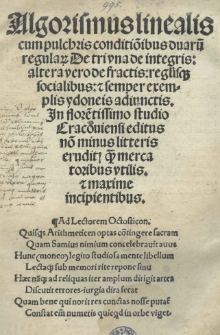 Algorismus linealis
cum pulchris conditiõibus duarũ
regulaꝝ De tri vna de integris:
altera vero de fractis: reglisqꝫ
socialibus: ⁊ semper exem-
plis ydoneis adiunctis.
In florẽtissimo studio
Cracõuiensi editus
nõ minus litteris
eruditꝭ ꝙ̃ merca
toribus vtilis.
⁊ maxime
incipientibus.
¶Ad Lectorem Octosticon.
Quisqꝫ Arithmeticen optas cõtingere sacram
Quam Samius nimium concelebrauit auus
Hunc moneo legito studiosa mente libellum
Lectaqꝫ sub memori rite repone sinu
Hec nãqꝫ ad reliquas iter amplum dirigit artea
Discutit errores iurgia dira secat
Quam bene qui norit res cunctas nosse putat
Constat em̃ numeris quicqd in orbe viget